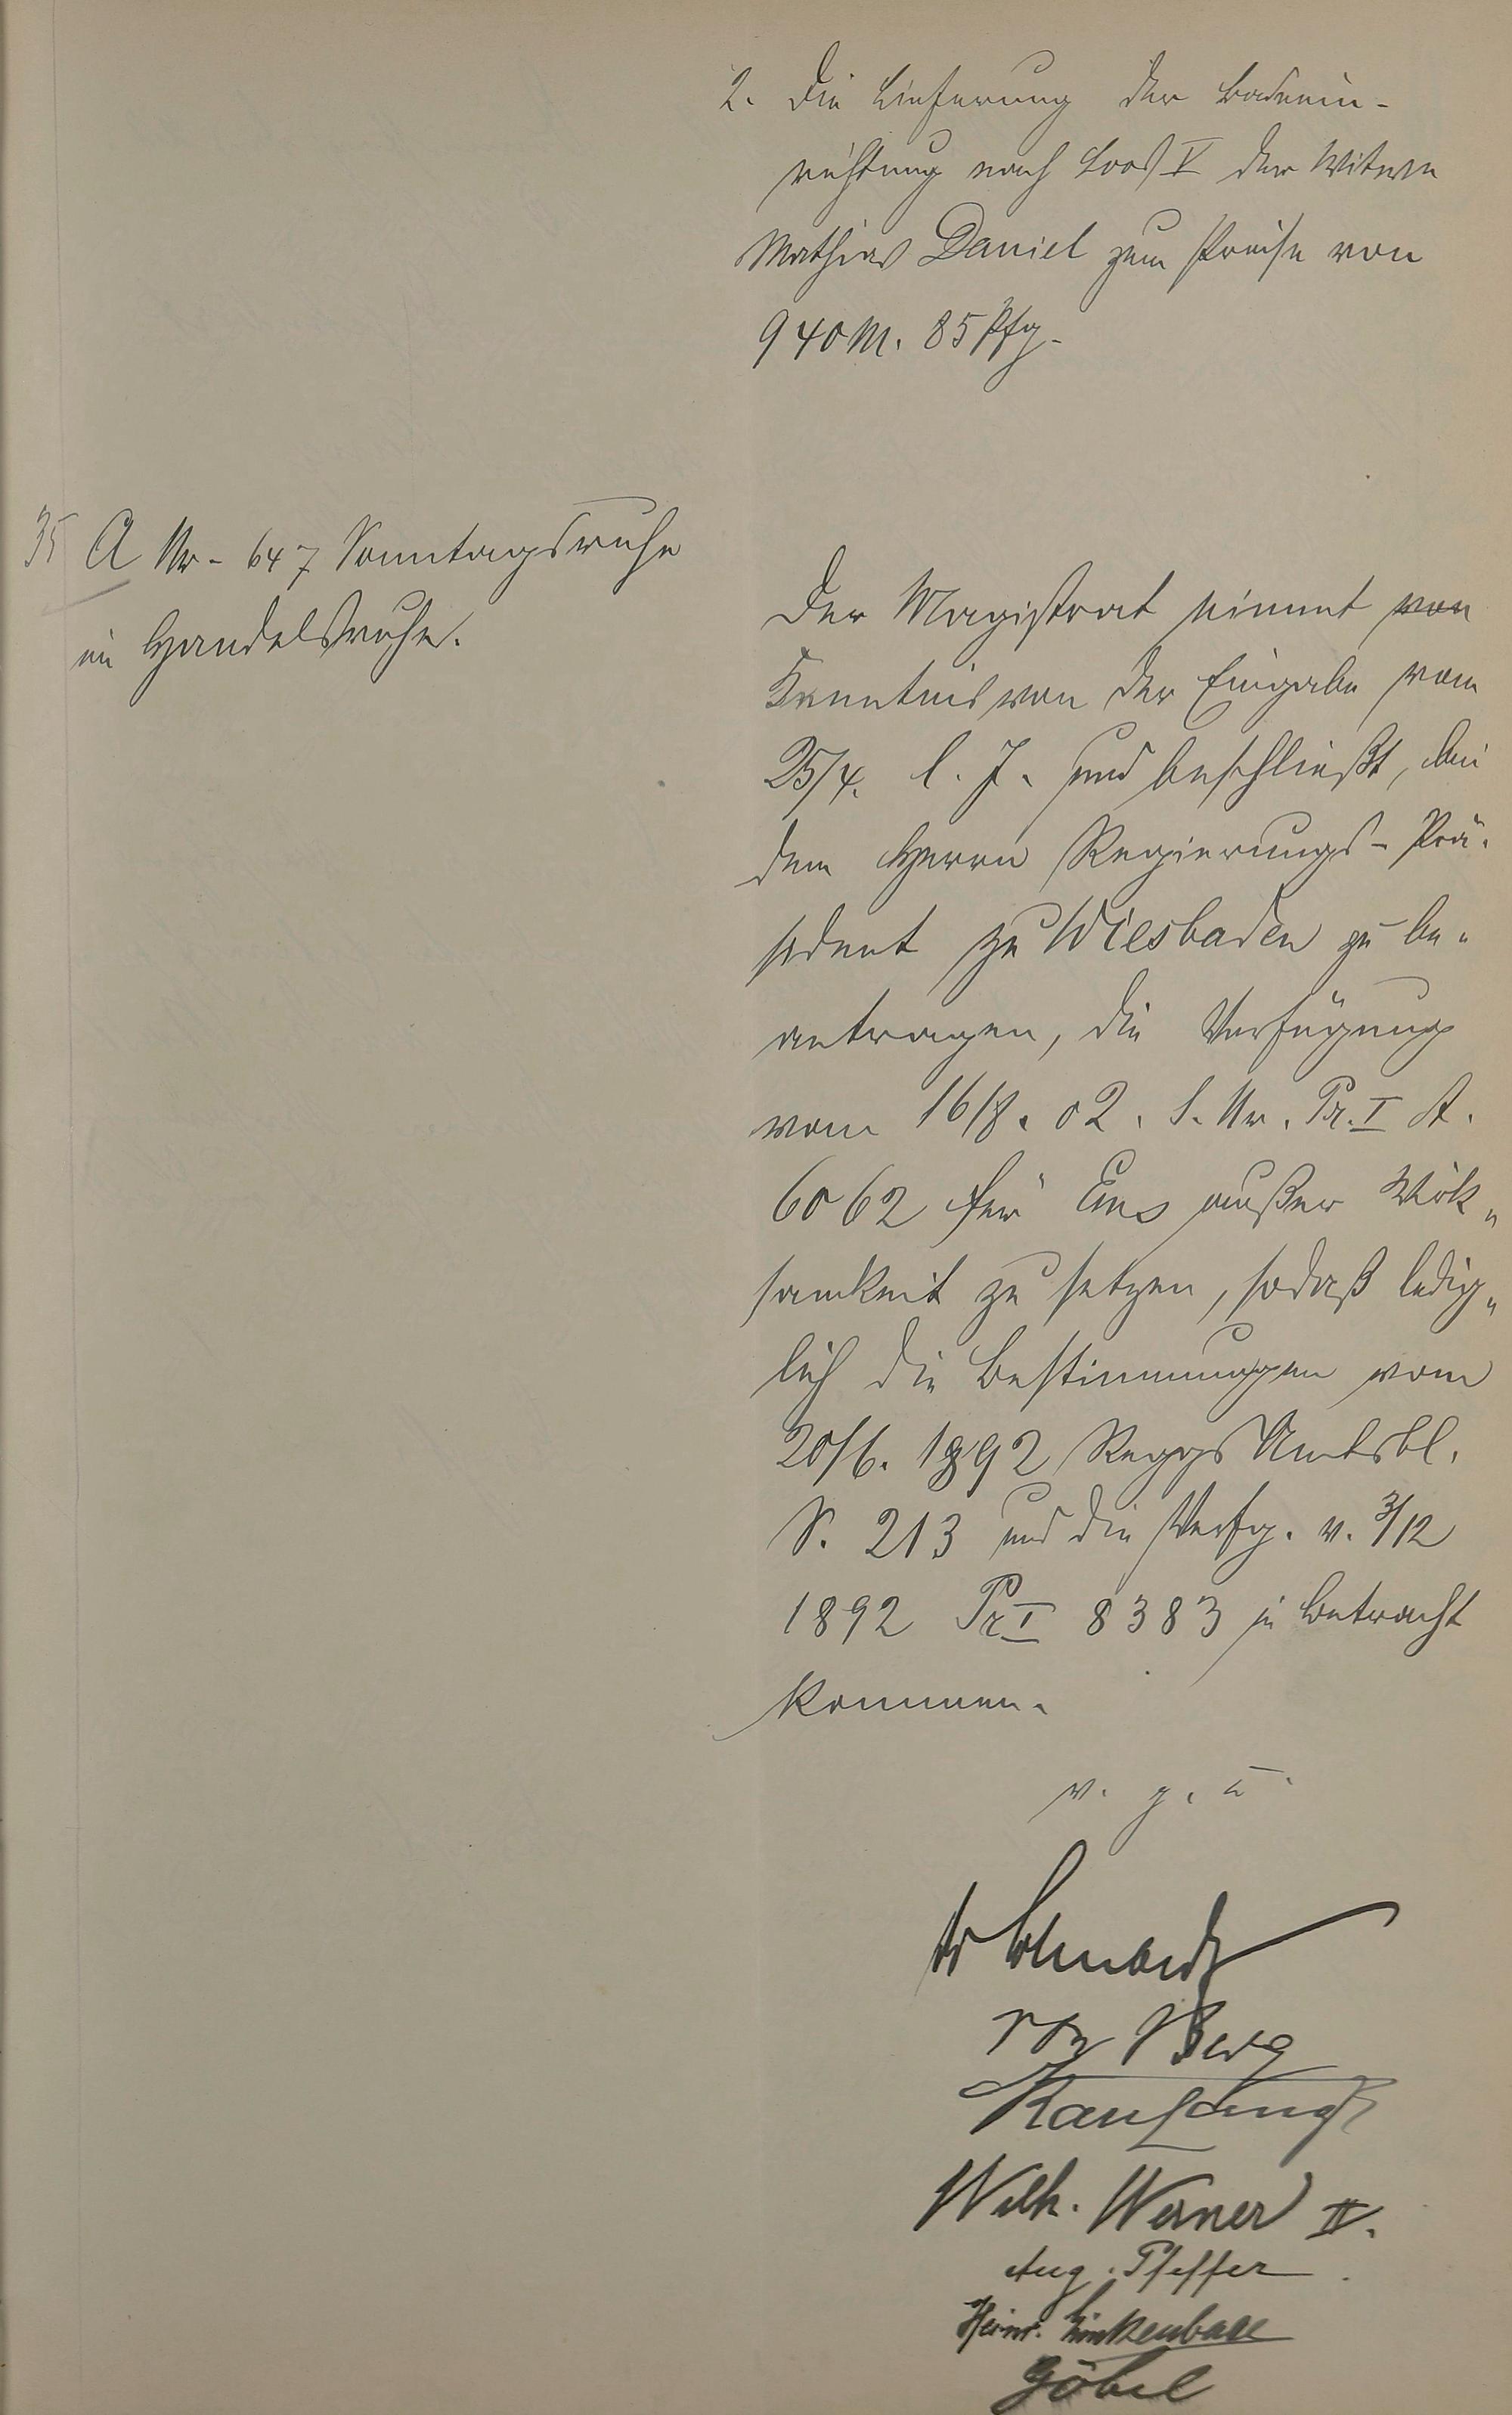 2. Die Lieferung der Badeein-
richtung nach Loos V der Witwe
Mathias Daniel zum Preise von
940 M. 85 Pfg.
35 A Nr. 647 Sonntagsruhe
im Handelsruhe.
Der Magistrat nimmt von
Kenntnis von der Eingabe vom
25/4. l. J. und beschließt, bei
dem Herrn Regierungs-Prä-
sident zu Wiesbaden zu be-
antragen, die Verfügung
vom 16/8. 02. S. Nr. Pr. I A.
6062 für Ems außer Wirk-
samkeit zu setzen, sodaß ledig-
lich die Bestimmungen vom
20/6. 1892 Reggs Amtsbl.
S. 213 und die Verfg. v. 3/12
1892 Pr I 8383 in Betracht
kommen.
v. g. u.
von Berg
Wilh. Werner II.
Aug. Pfeffer
Heinr. Linkenbach
Göbel